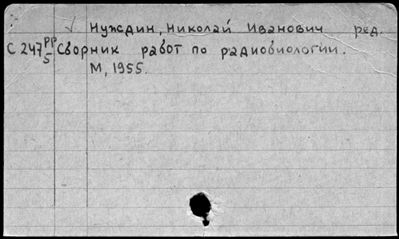 Нуждин, Николай Иванович ред.
С 247 РР/5 Сборник работ по радиобиологии.
М, 1955.